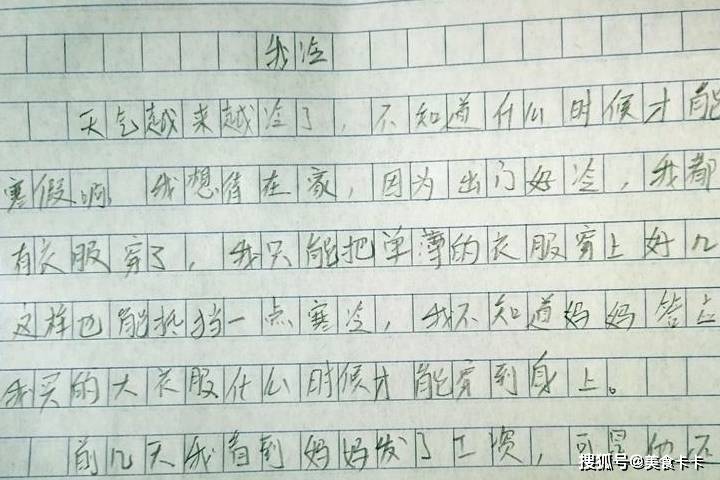 我冷
天气越来越冷了，不知道什么时候才能
寒假啊，我想待在家，因为出门好冷，我都
有衣服穿了，我只能把单薄的衣服穿上好几
这样也能抵挡一点寒冷，我不知道妈妈答应
我买的大衣服什么时候才能穿到身上。
前几天我看到妈妈发了工资，可是她不
搜狐号@美食卡卡